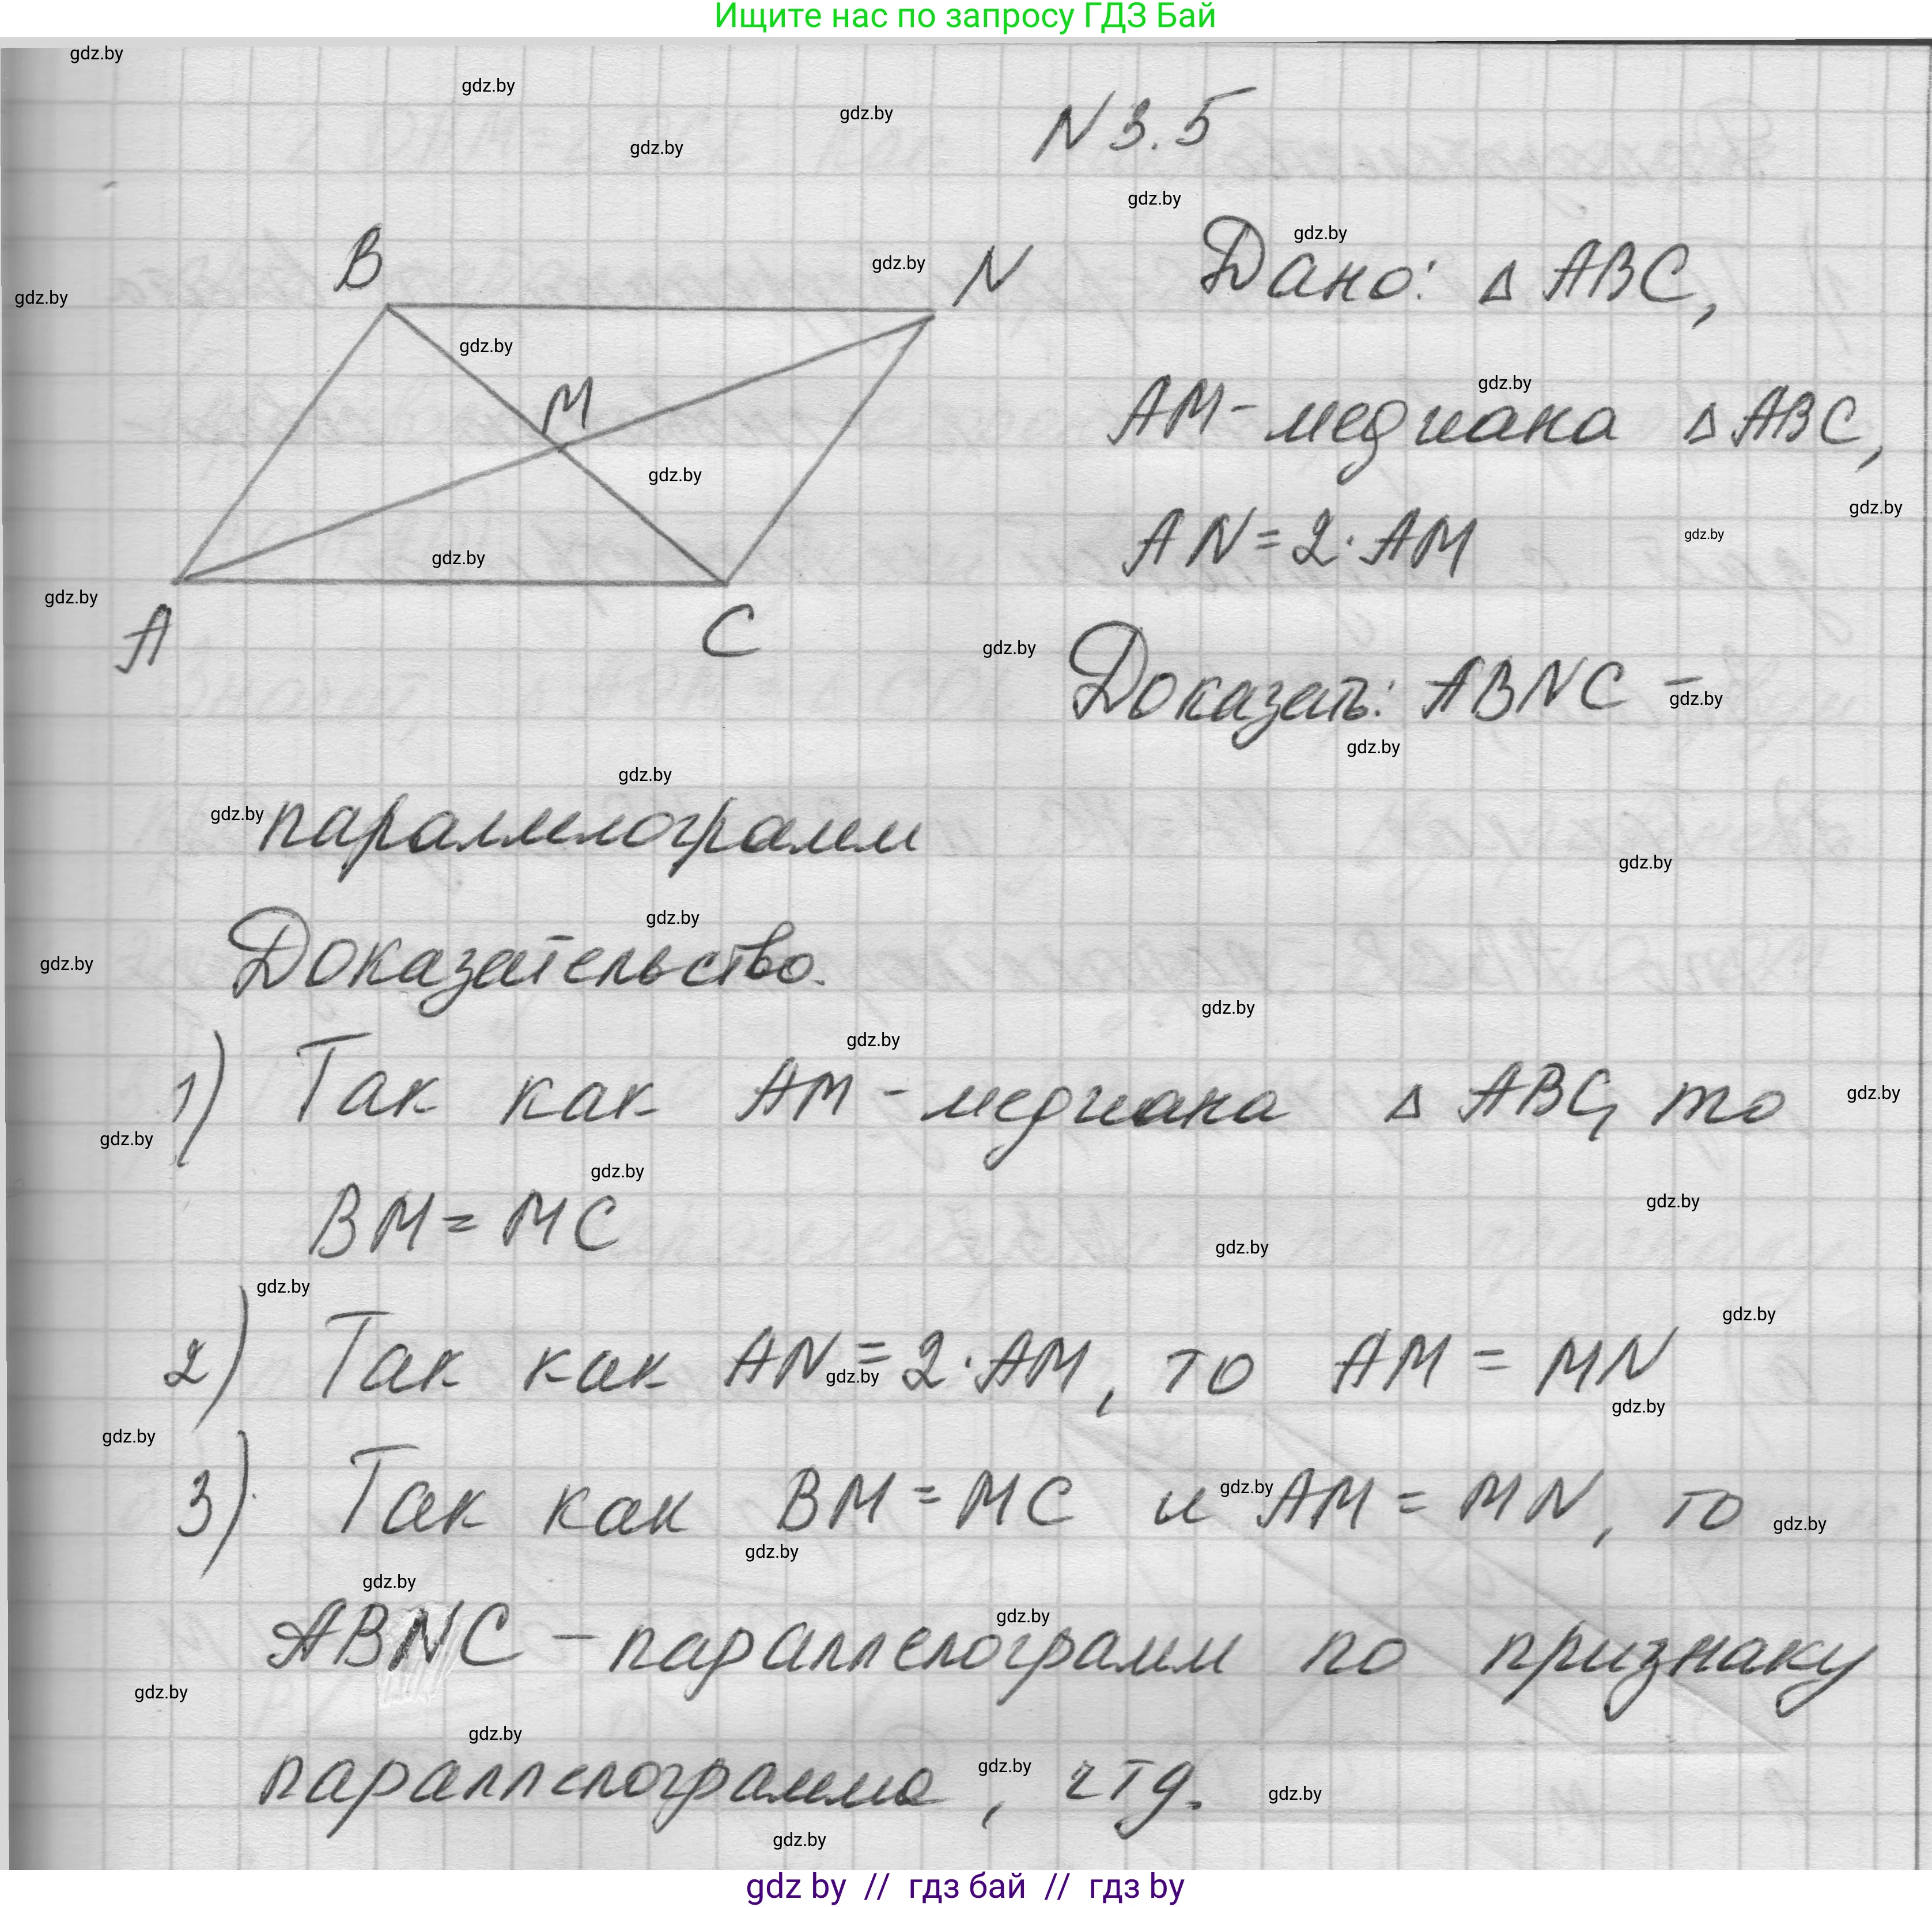 Ищите нас по запросу ГДЗ Бай
gdz.by
gdz.by
gdz.by
gdz.by
N 3.5
gdz.by
B
gdz.by
N
Дано: Δ ABC,
gdz.by
gdz.by
gdz.by
M
gdz.by
AM - медиана Δ ABC,
gdz.by
gdz.by
AN = 2 · AM
gdz.by
gdz.by
gdz.by
A
C
gdz.by
Доказать: ABNC -
gdz.by
gdz.by
gdz.by
gdz.by
параллелограмм
gdz.by
gdz.by
Доказательство.
gdz.by
gdz.by
gdz.by
1) Так как AM - медиана Δ ABC, то
gdz.by
gdz.by
gdz.by
BM = MC
gdz.by
gdz.by
gdz.by
gdz.by
2) Так как AN = 2 · AM, то AM = MN
gdz.by
gdz.by
gdz.by
3) Так как BM = MC и AM = MN, то
gdz.by
gdz.by
gdz.by
gdz.by
gdz.by
ABNC - параллелограмм по признаку
gdz.by
gdz.by
параллелограмма, чтд.
gdz.by
gdz.by
gdz.by
gdz by // гдз бай // гдз by